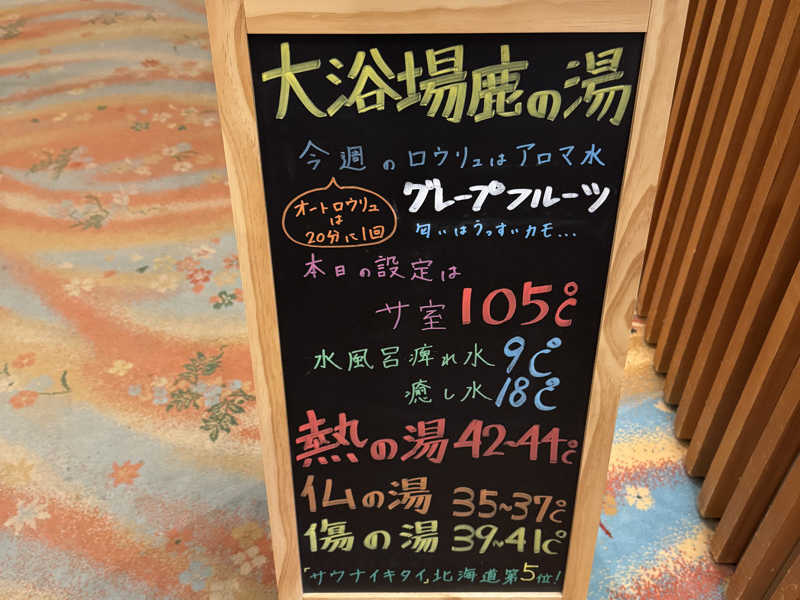 大浴場鹿の湯
今週のロウリュはアロマ水
オートロウリュ
は
20分に1回
グレープフルーツ
匂いはうっすいカモ...
本日の設定は
サ室 105℃
水風呂痺れ水 9℃
癒し水 18℃
熱の湯 42~44℃
仏の湯 35~37℃
傷の湯 39~41℃
「サウナイキタイ」北海道第5位!